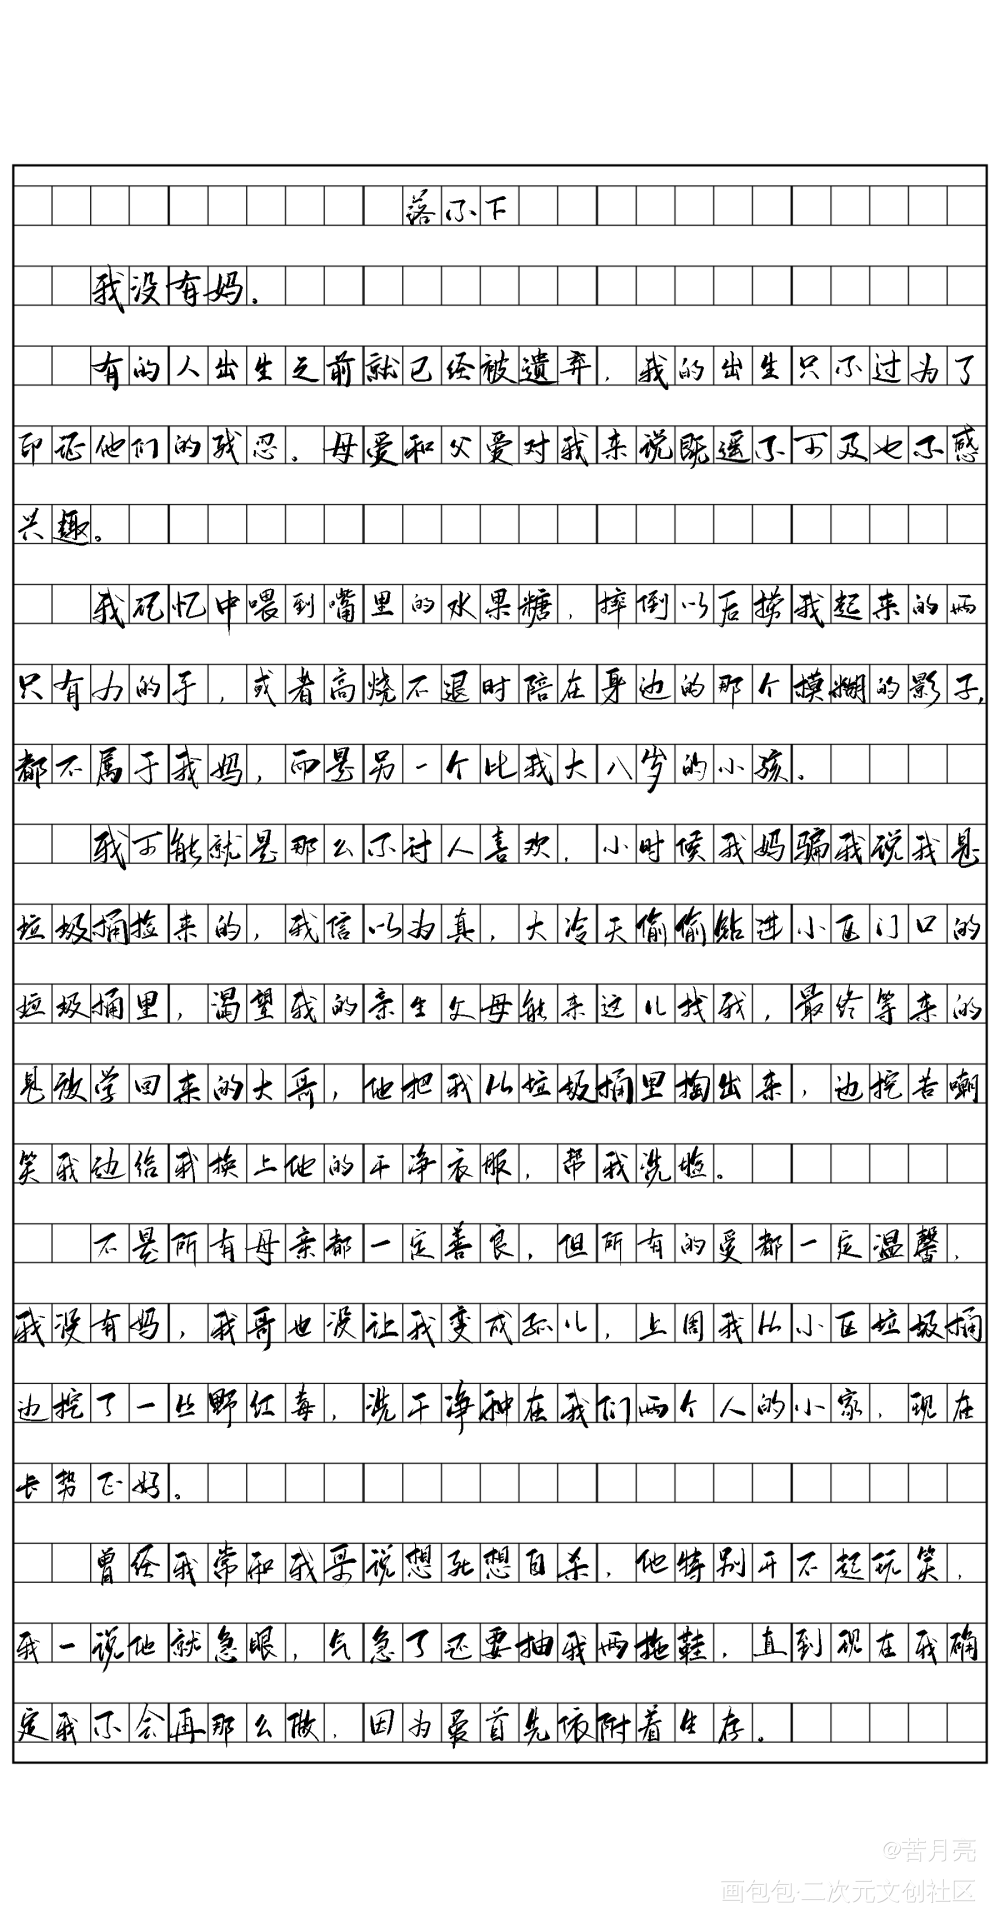 落不下
我没有妈。
有的人出生之前就已经被遗弃，我的出生只不过为了
印证他们的残忍。母爱和父爱对我来说既遥不可及也不感
兴趣。
我记忆中喂到嘴里的水果糖，摔倒以后捞我起来的两
只有力的手，或者高烧不退时陪在身边的那个模糊的影子，
都不属于我妈，而是另一个比我大八岁的小孩。
我可能就是那么不讨人喜欢，小时候我妈骗我说我是
垃圾桶捡来的，我信以为真，大冷天偷偷钻进小区门口的
垃圾桶里，渴望我的亲生父母能来这儿找我，最终等来的
是放学回来的大哥，他把我从垃圾桶里掏出来，边挖苦嘲
笑我边给我换上他的干净衣服，帮我洗脸。
不是所有母亲都一定善良，但所有的爱都一定温馨，
我没有妈，我哥也没让我变成孤儿，上周我从小区垃圾桶
边挖了一丛野红莓，洗干净种在我们两个人的小家，现在
长势正好。
曾经我常和我哥说想死想自杀，他特别开不起玩笑，
我一说他就急眼，气急了还要抽我两拖鞋，直到现在我确
定我不会再那么做，因为爱首先依附着生存。
@苦月亮
画包包·二次元文创社区